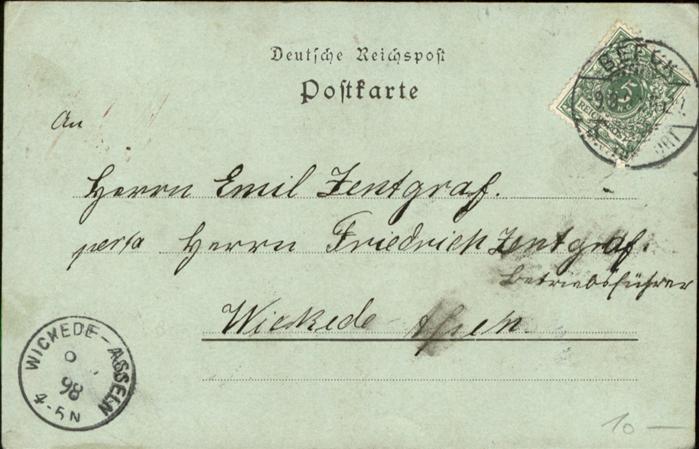 Deutsche Reichspost
Postkarte
An
BEECK
5
Herrn Emil Zentgraf.
Herrn Friedrich Zentgraf.
Betriebsführer
Wickede Asseln.
WICKEDE-ASSELN
9
98
4-5N
10 —